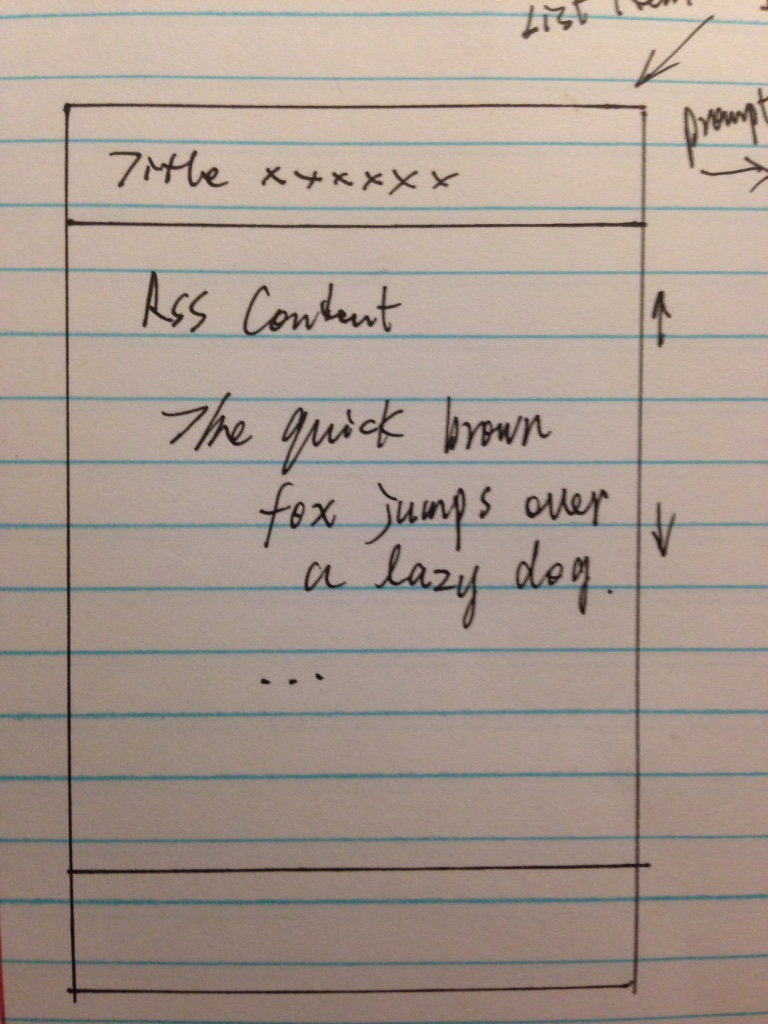 List Item
prompt
Title xxxxxx
Rss Content
The quick brown
fox jumps over
a lazy dog.
...